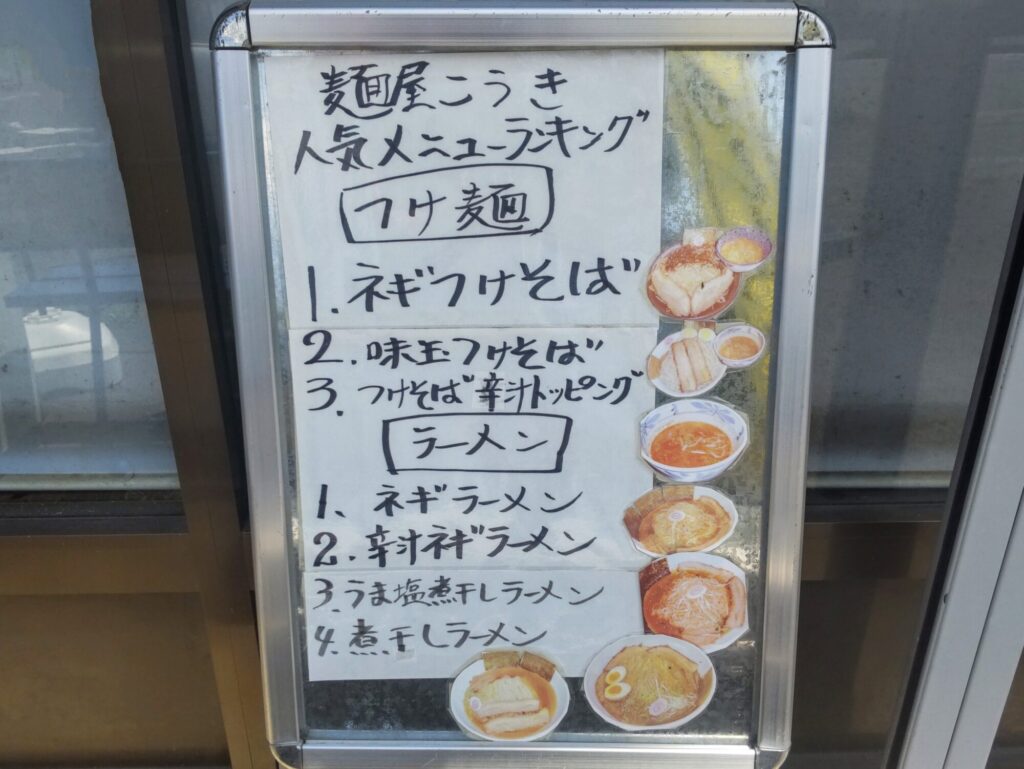 麺屋こうき
人気メニューランキング
つけ麺
1. ネギつけそば
2. 味玉つけそば
3. つけそば辛汁トッピング
ラーメン
1、ネギラーメン
2. 辛汁ネギラーメン
3. うま塩煮干しラーメン
4. 煮干しラーメン